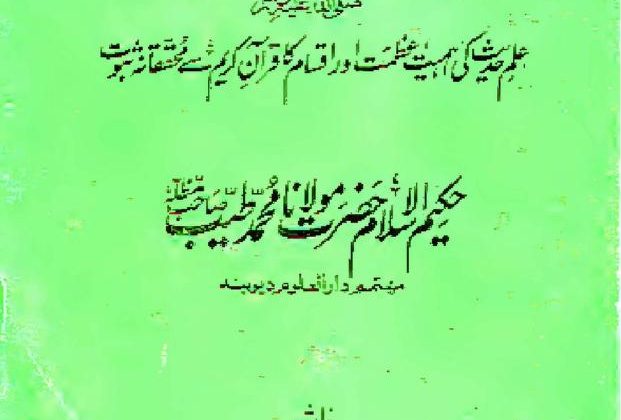 علم حدیث کی اہمیت عظمت اور اقسام کا قرآن کریم سے محققانہ ثبوت
حکیم الاسلام حضرت مولانا محمد طیب صاحب مدظلہ
مہتمم دارالعلوم دیوبند